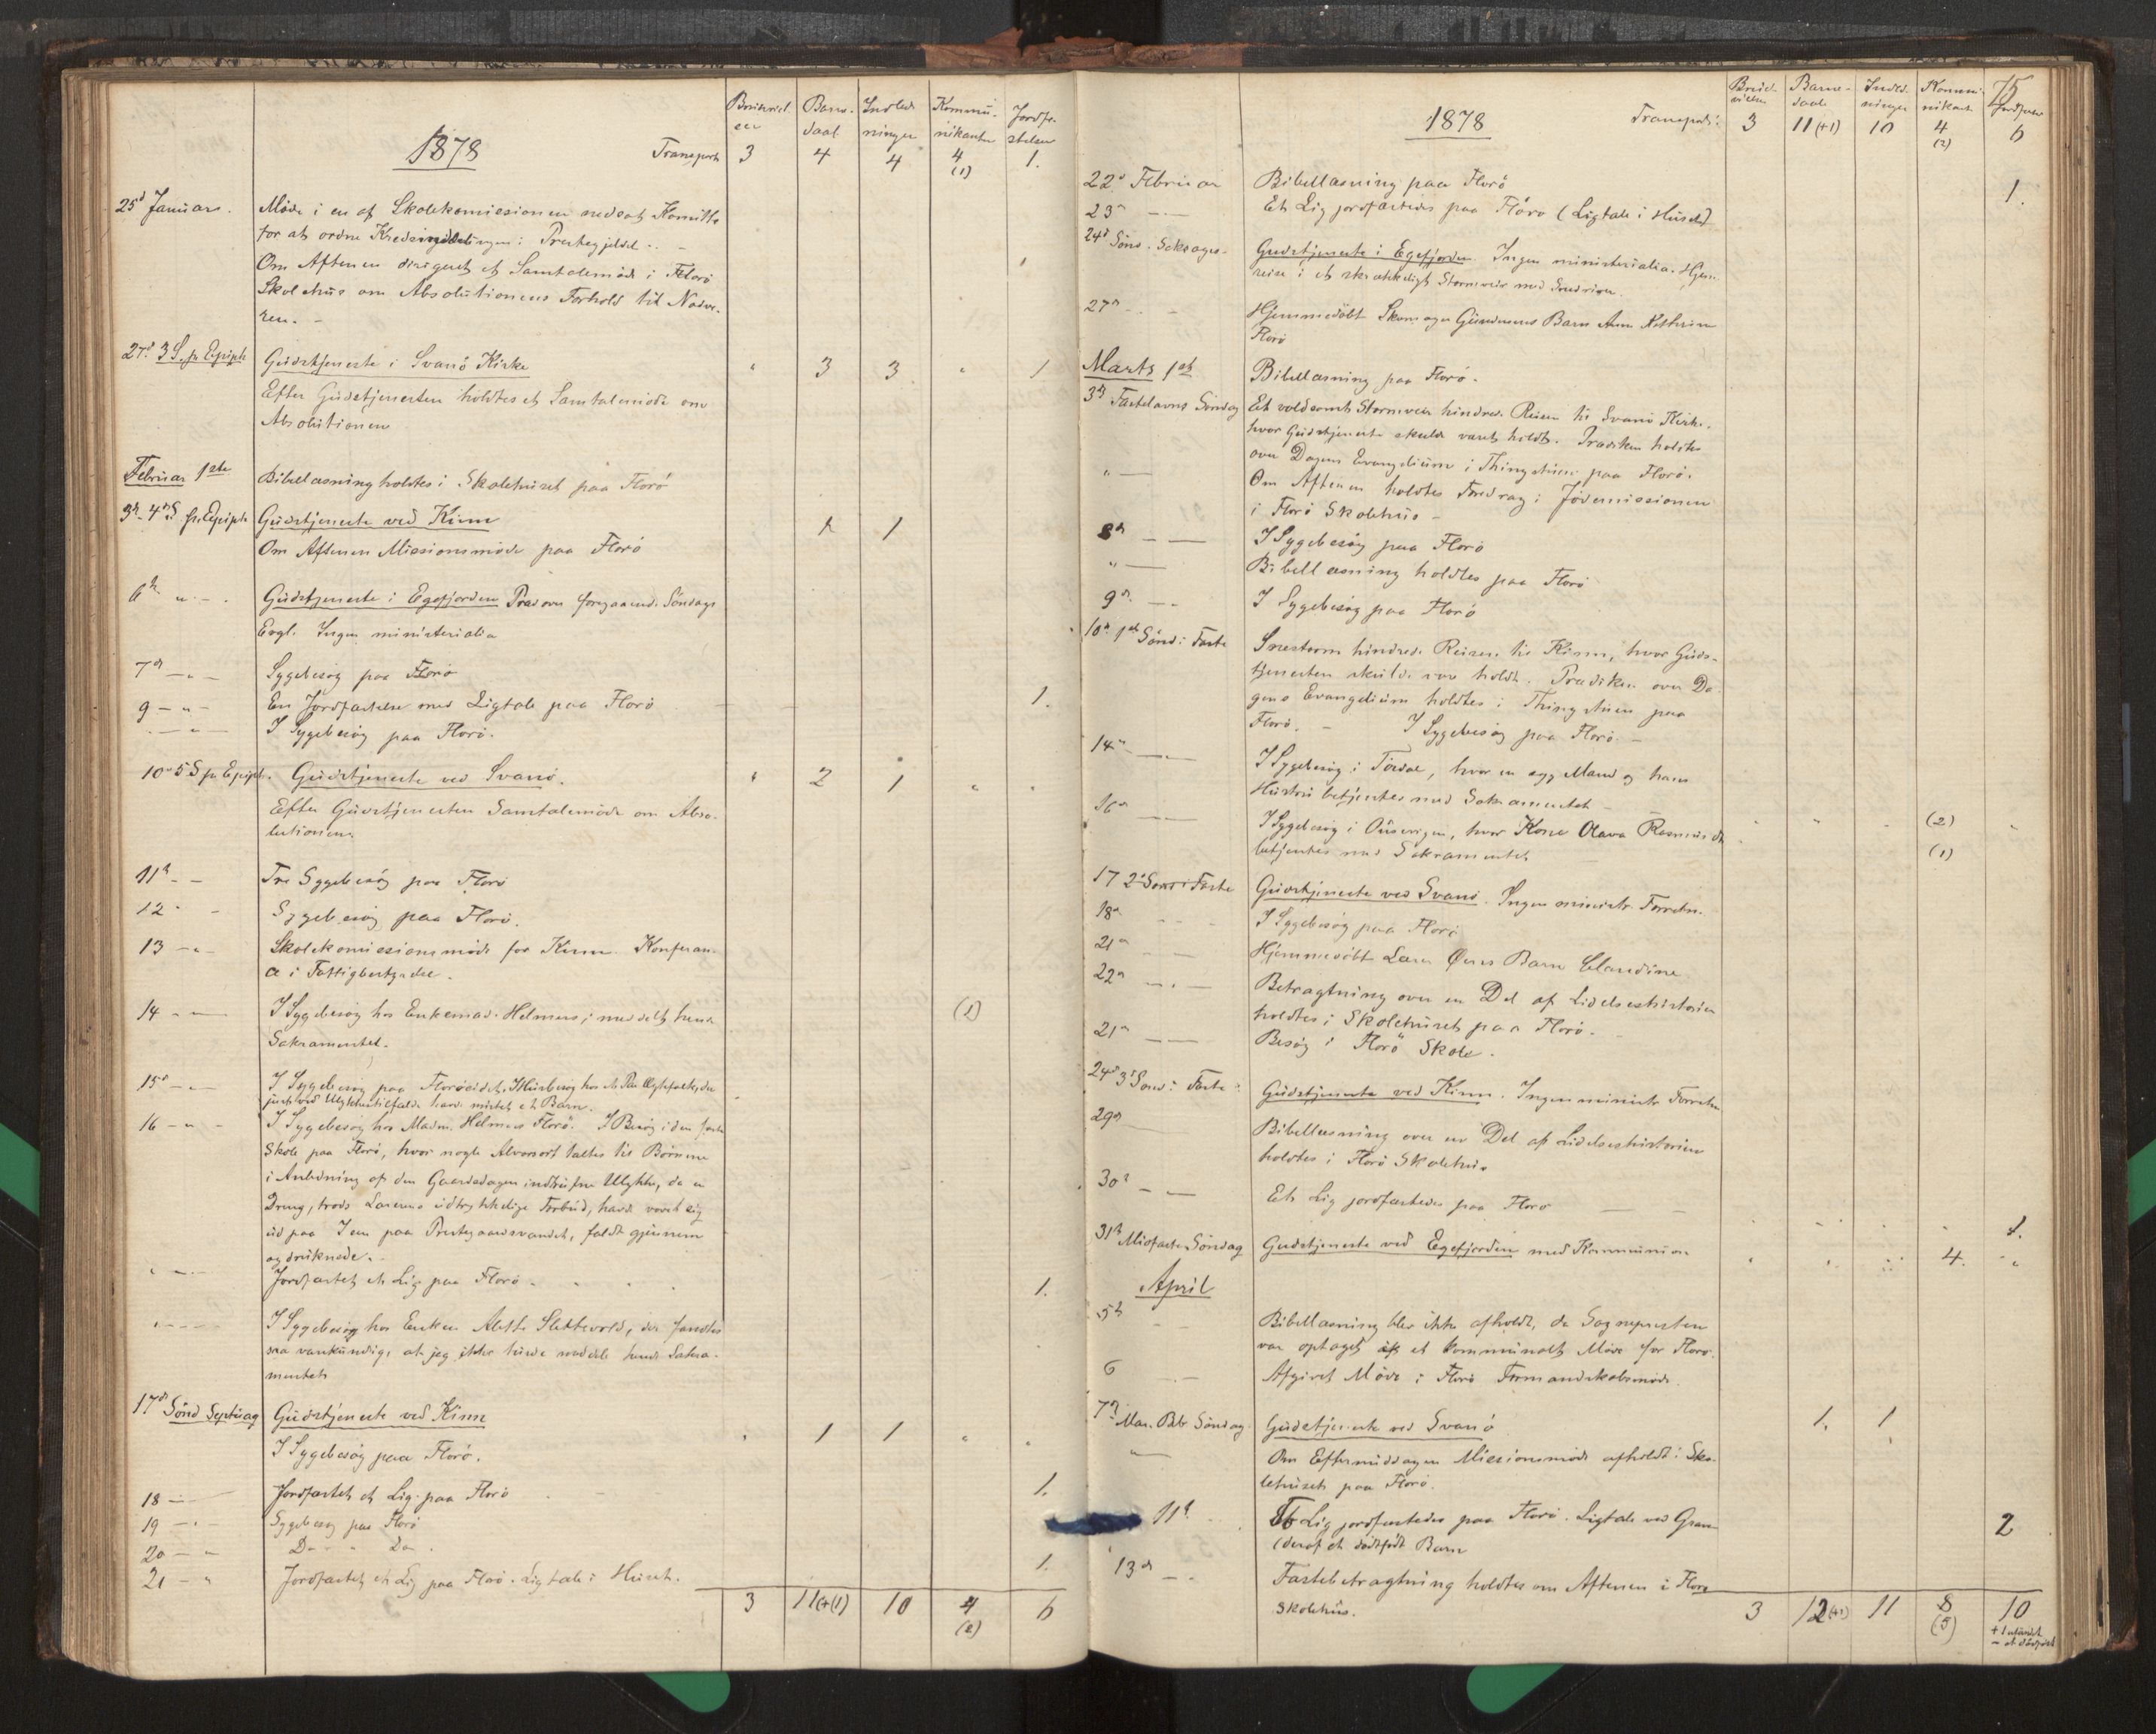 1878
Brudeviel
ser
Barne-
daab
Indled
ninger
Kommu-
nikanter
Jordfæ-
stelser
Transport 3 4 4 4 (1) 1.
25d Januar. Møde i en af Skolekomissionen nedsat Komitte
for at ordne Kredsinddelingen i Prestegjeldet
Om Aftenen dirigeret et Samtalemøde i Florö
Skolehus om Absolutionens Forhold til Nadve-
ren. -
27d 3 S. p Epiph Gudstjeneste i Svanö Kirke " 3 3 " 1
Efter Gudstjenesten holdtes et Samtalemöde om
Absolutionen
Februar 1ste Bibellæsning holdtes i Skolehuset paa Florö
3d. 4d S p. Epiph Gudstjeneste ved Kinn 1 1
Om Aftenen Missionsmöde paa Florö
6d " - Gudstjeneste i Egefjorden Præd over foregaaende Söndags
Evgl. Ingen ministerialia
7d - " - Sygebesög paa Florö
9 - " - En Jordfæstelse med Ligtale paa Florö 1.
. - " - I Sygebesög paa Florö.
10d 5 S p Epiph. Gudstjeneste ved Svanö. " 2 1 " "
Efter Gudstjenesten Samtalemöde om Abso-
lutionen.
11d - - Tre Sygebesög paa Florö
12 - - Sygebesög paa Florö.
13 - " Skolekomissionsmöde for Kinn. Konferan-
ce i Fattigbestyrelse.
14 - " - I Sygebesög hos Enkemad. Helmers; meddelt hende (1)
Sakramentet.
15d - " - I Sygebesög paa Florölandet. I Husbesög hos et Par Ægtefolk, der
just ved Ulykkestilfælde havde mistet et Barn.
16 - " - I Sygebesög hos Madm. Helmers Florö. I Besög i den faste
Skole paa Florö, hvor nogle Alvorsord taltes til Börnene
i Anledning af den Gaarsdagen indtrufne Ulykke, da en
Dreng, trods Lærerens udtrykkelige Forbud, havde vovet sig
ud paa Isen paa Prestegaardsvandet, faldt gjennem
og druknede. -
" - " - Jordfæstet et Lig paa Florö. 1.
" - - - I Sygebesög hos Enken Alette Slettevold, der fandtes
saa vankundig, at jeg ikke turde meddele hende Sakra-
mentet
17d Sönd Septuag Gudstjeneste ved Kinn " 1 1 " "
I Sygebesög paa Florö.
18 - Jordfæstet et Lig paa Florö 1.
19 - " Sygebesög paa Florö
20 - " Do - " Do.
21 - " Jordfæstet et Lig paa Florö. Ligtale i Huset. 1.
3 11(+(1) 10 4 (2) 6
75
1878
Brude-
vielser
Barne-
daab
Indled-
ninger
Kommu-
nikant
Jordfæst
Transport: 3 11(+1) 10 4 (2) 6
22d Februar Bibellæsning paa Florö
23d - - Et Lig jordfæstedes paa Florö (Ligtale i Huset) 1.
24d Sönd. Seksages. Gudstjeneste i Egefjorden. Ingen ministerialia. Hjem-
reise i et skrækkeligt Stormveir med Snedriver.
27d - - Hjemmedöbt Skomager Gundersens Barn Anne Kathrine
Florö
Marts 1ste Bibellæsning paa Florö.
3d Fastelavns Söndag Et voldsomt Stormveir hindrede Reisen til Svanö Kirke,
hvor Gudstjeneste skulde været holdt. Prædiken holdtes
over Dagens Evangelium i Thingstuen paa Florö.
" - Om Aftenen holdtes Foredrag i Jödemissionen
i Florö Skolehus -
8d - - I Sygebesög paa Florö
" - Bibellæsning holdtes paa Florö
9d. - . I Sygebesög paa Florö
10d. 1ste Sönd i Faste Snestorm hindrede Reisen til Kinn, hvor Guds-
tjenesten skulde være holdt. Prædiken over Da-
gens Evangelium holdtes i Thingstuen paa
Florö. - I Sygebesög paa Florö. -
14d - - I Sygebesög i Tördal, hvor en syg Mand og hans
Hustru betjentes med Sakramentet - (2)
16d - - I Sygebesög i Ousevigen, hvor Kone Olava Rasmusdr
betjentes med Sakramentet (1)
17 2d Sönd i Faste Gudstjeneste ved Svanö. Ingen ministr. Forretn.
18d I Sygebesög paa Florö
21d Hjemmedöbt Lærer Öens Barn Claudine
22d - " - Betragtning over en Del af Lidelseshistorien
holdtes i Skolehuset paa Florö.
21d - - Besög i Florö Skole.
24d 3 Sönd i Faste Gudstjeneste ved Kinn. Ingen ministr Forretn
29d Bibellæsning over en Del af Lidelseshistorien
holdtes i Florö Skolehus
30d - - Et Lig jordfæstedes paa Florö 1.
31d Midfaste Söndag Gudstjeneste ved Egefjorden med Kommunion 4. "
April
5d Bibellæsning blev ikke afholdt, da Sognepresten
var optaget af et kommunalt Möde for Florö.
6 - - Afgivet Möde i Florö Formandskabsmöde.
7d Mar. Beb Söndag Gudstjeneste ved Svanö 1. 1
" Om Eftermiddagen Missionsmöde afholdt i Sko-
lehuset paa Florö.
11d To Lig jordfæstedes paa Florö. Ligtale ved Graven 2
(deraf et dödfödt Barn
13d - - Fastebetragtning holdtes om Aftenen i Florö
Skolehus.
3 12(+1) 11 8 (5) 10